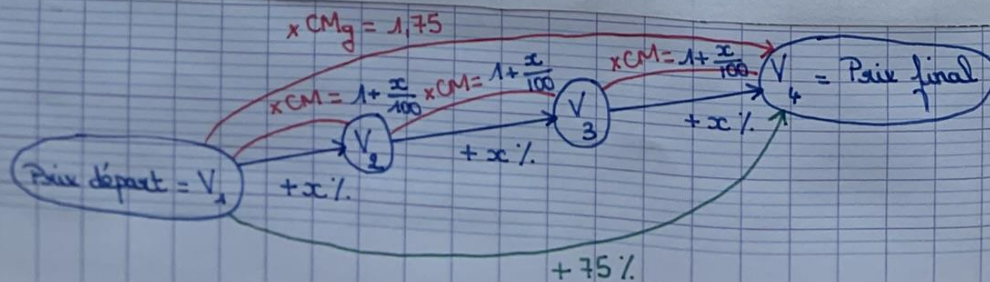 ×CMg = 1,75
×CM = 1 + x/100
×CM = 1 + x/100
×CM = 1 + x/100
Prix départ = V₁
V₂
V₃
V₄ = Prix final
+x%
+x%
+x%
+75%